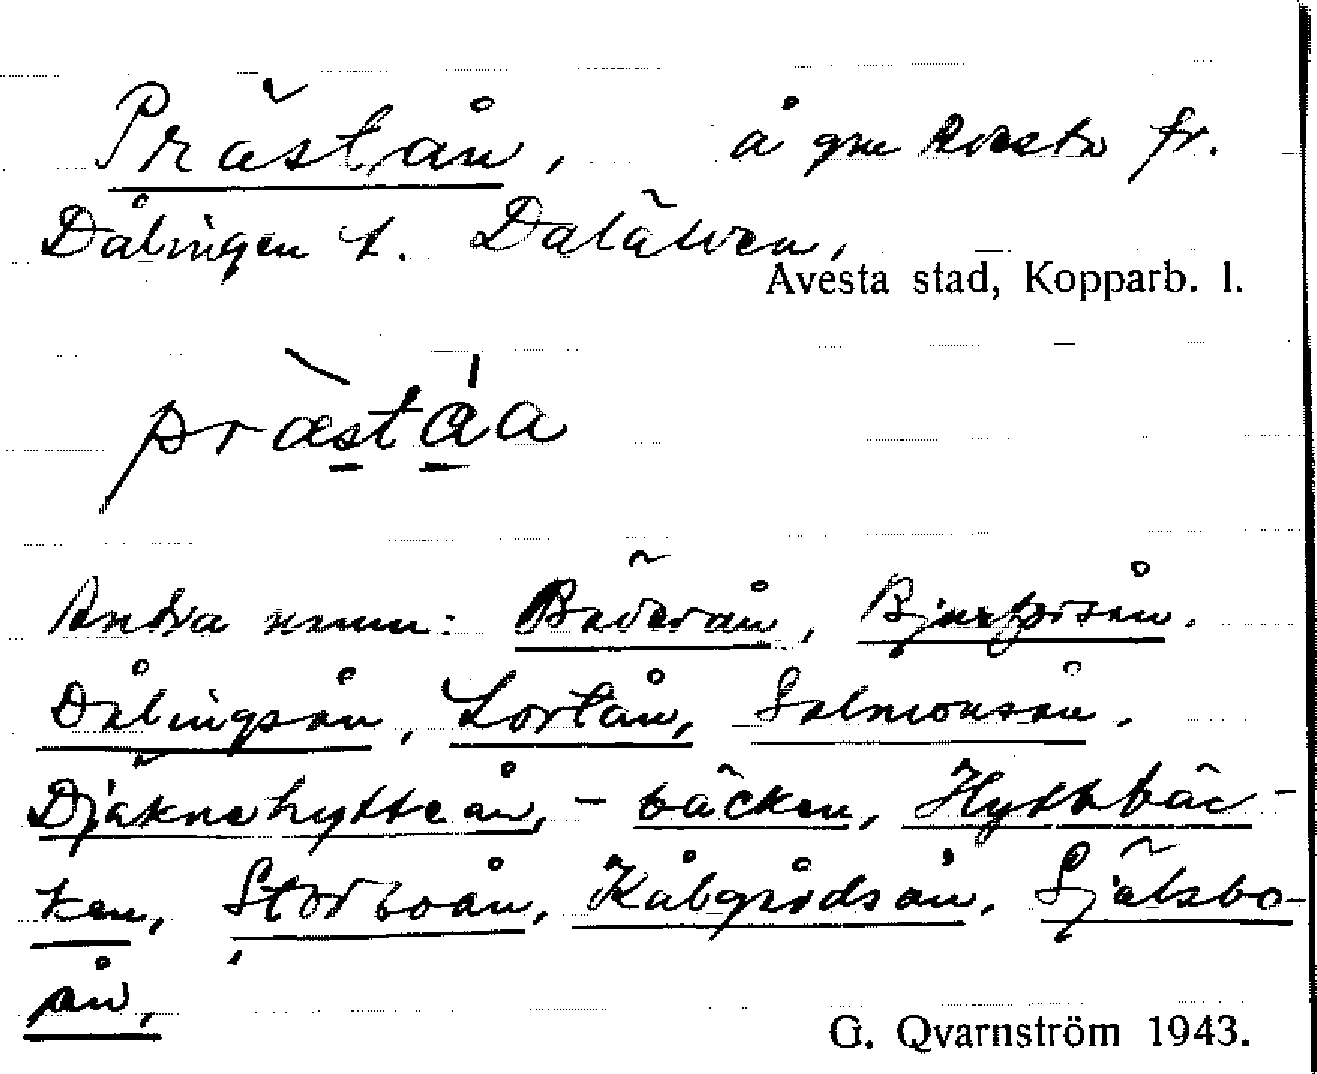 Prästån, å gm Avesta fr.
Dålingen t. Dalälven,
Avesta stad, Kopparb. l.
præ̀ståa
Andra namn: Baderån, Bjurforsån.
Dålingsån, Lortån, Salmonsån,
Djäknehytteån, - bäcken, Hyttbäc-
ken, Storboån, Kålgårdsån, Självsbo-
ån,
G. Qvarnström 1943.